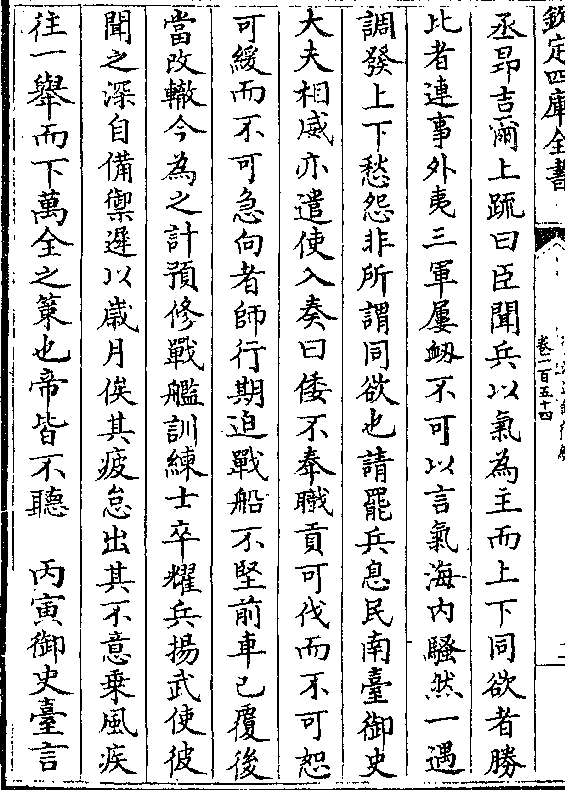 欽定四庫全書
卷一百五十四
丞昂吉爾上疏曰臣聞兵以氣為主而上下同欲者勝
比者連事外夷三軍屢衂不可以言氣海内騷然一遇
調發上下愁怨非所謂同欲也請罷兵息民南臺御史
大夫相威亦遣使入奏曰倭不奉職貢可伐而不可恕
可緩而不可急向者師行期迫戰船不堅前車已覆後
當改轍今為之計預修戰艦訓練士卒耀兵揚武使彼
聞之深自備禦遲以歳月俟其疲怠出其不意乗風疾
往一舉而下萬全之策也帝皆不聽　丙寅御史臺言